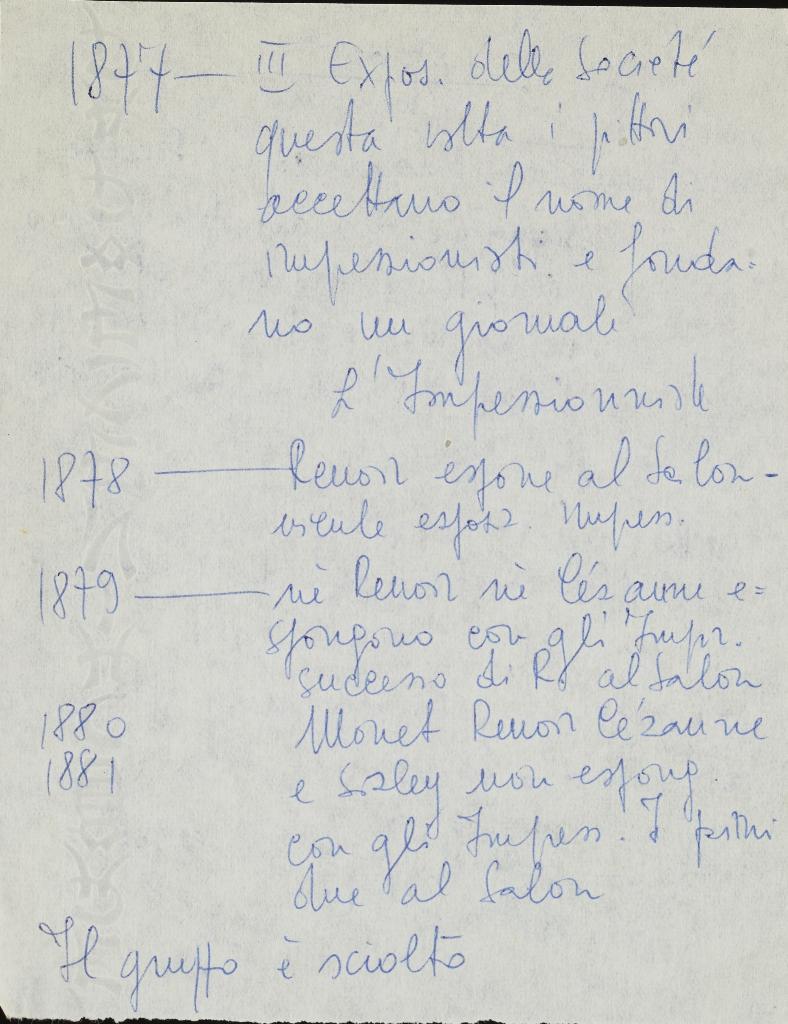 1877 — III Expos. della Societé
questa volta i pittori
accettano il nome di
impressionisti e fonda-
no un giornale
L'Impressionniste
1878 — Renoir espone al Salon -
niente esposiz. Impress.
1879 — nè Renoir nè Cézanne e=
spongono con gli Impr.
successo di R. al Salon
1880 Monet Renoir Cézanne
1881 e Sisley non espong.
con gli Impress. I primi
due al Salon
Il gruppo è sciolto